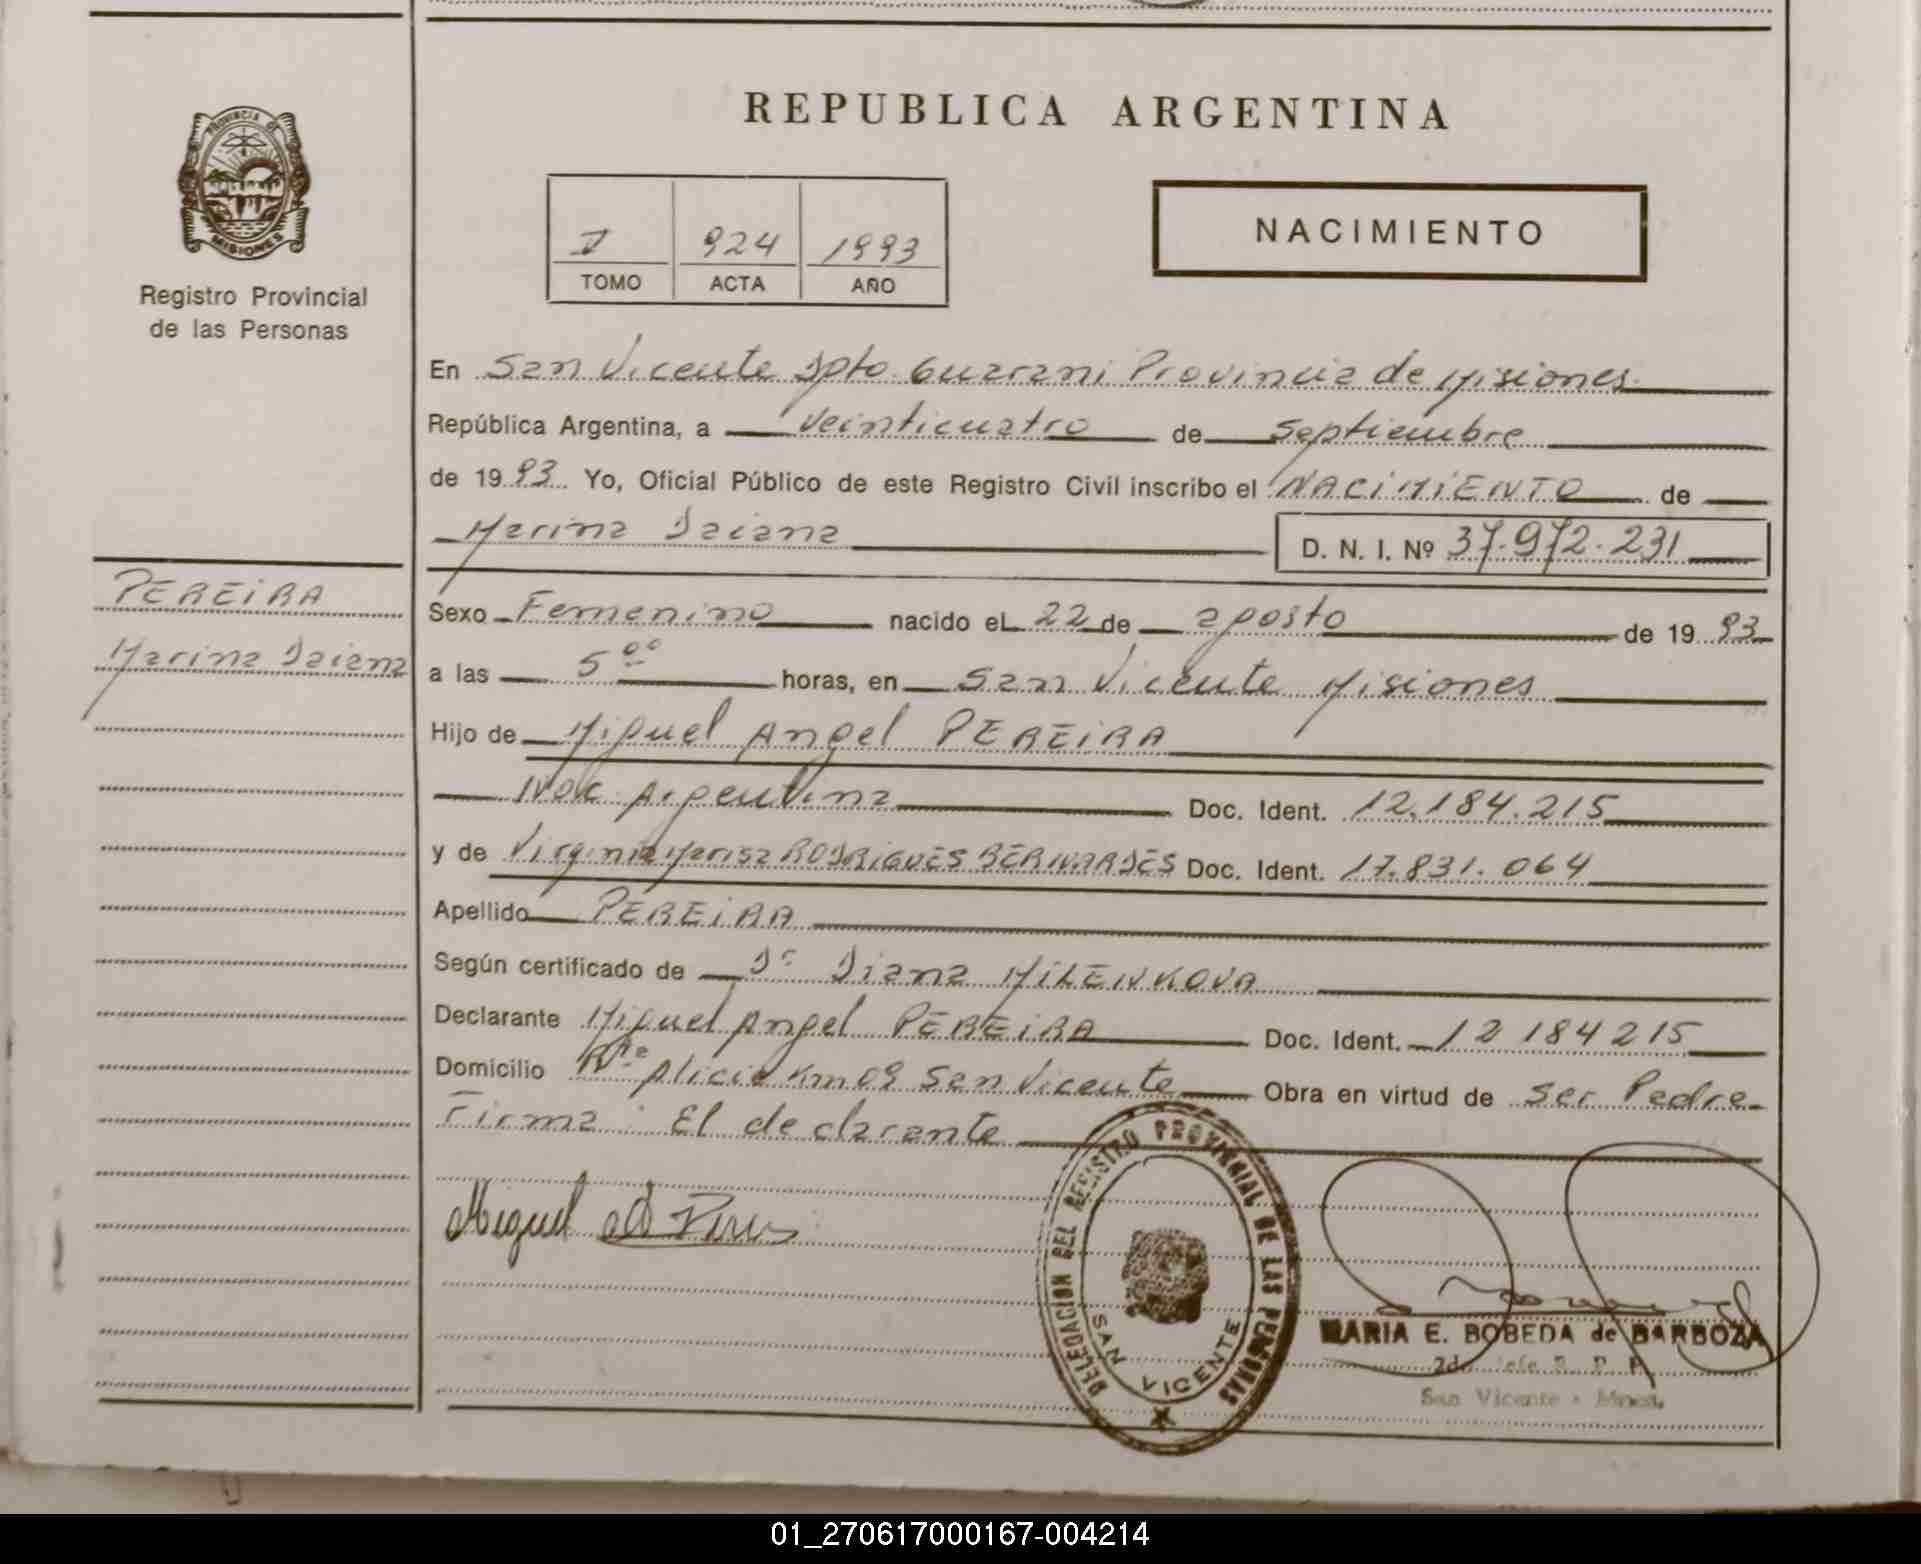 REPUBLICA ARGENTINA
PROVINCIA DE
MISIONES
Registro Provincial
de las Personas
I 924 1993
TOMO ACTA AÑO
NACIMIENTO
En San Vicente Dpto Guarani Provincia de Misiones
República Argentina, a veinticuatro de septiembre
de 1993 Yo, Oficial Público de este Registro Civil inscribo el NACIMIENTO de
Marina Daiana D. N. I. Nº 37.972.231
PEREIRA
Marina Daiana
Sexo Femenino nacido el 22 de agosto de 1993
a las 5 oo horas, en San Vicente Misiones
Hijo de Miguel Angel PEREIRA
Nac. Argentina Doc. Ident. 12.184.215
y de Virginia Marisa RODRIGUES BERNARDES Doc. Ident. 17.831.064
Apellido PEREIRA
Según certificado de Dra Diana MILENKOVA
Declarante Miguel Angel PEREIRA Doc. Ident. 12 184 215
Domicilio Alicia Km 09 San Vicente Obra en virtud de Ser Padre
Firma: El declarante
Miguel A
DELEGACION DEL REGISTRO PROVINCIAL DE LAS PERSONAS
SAN VICENTE
MARIA E. BOBEDA de BARBOZA
San Vicente - Mnes.
01_270617000167-004214